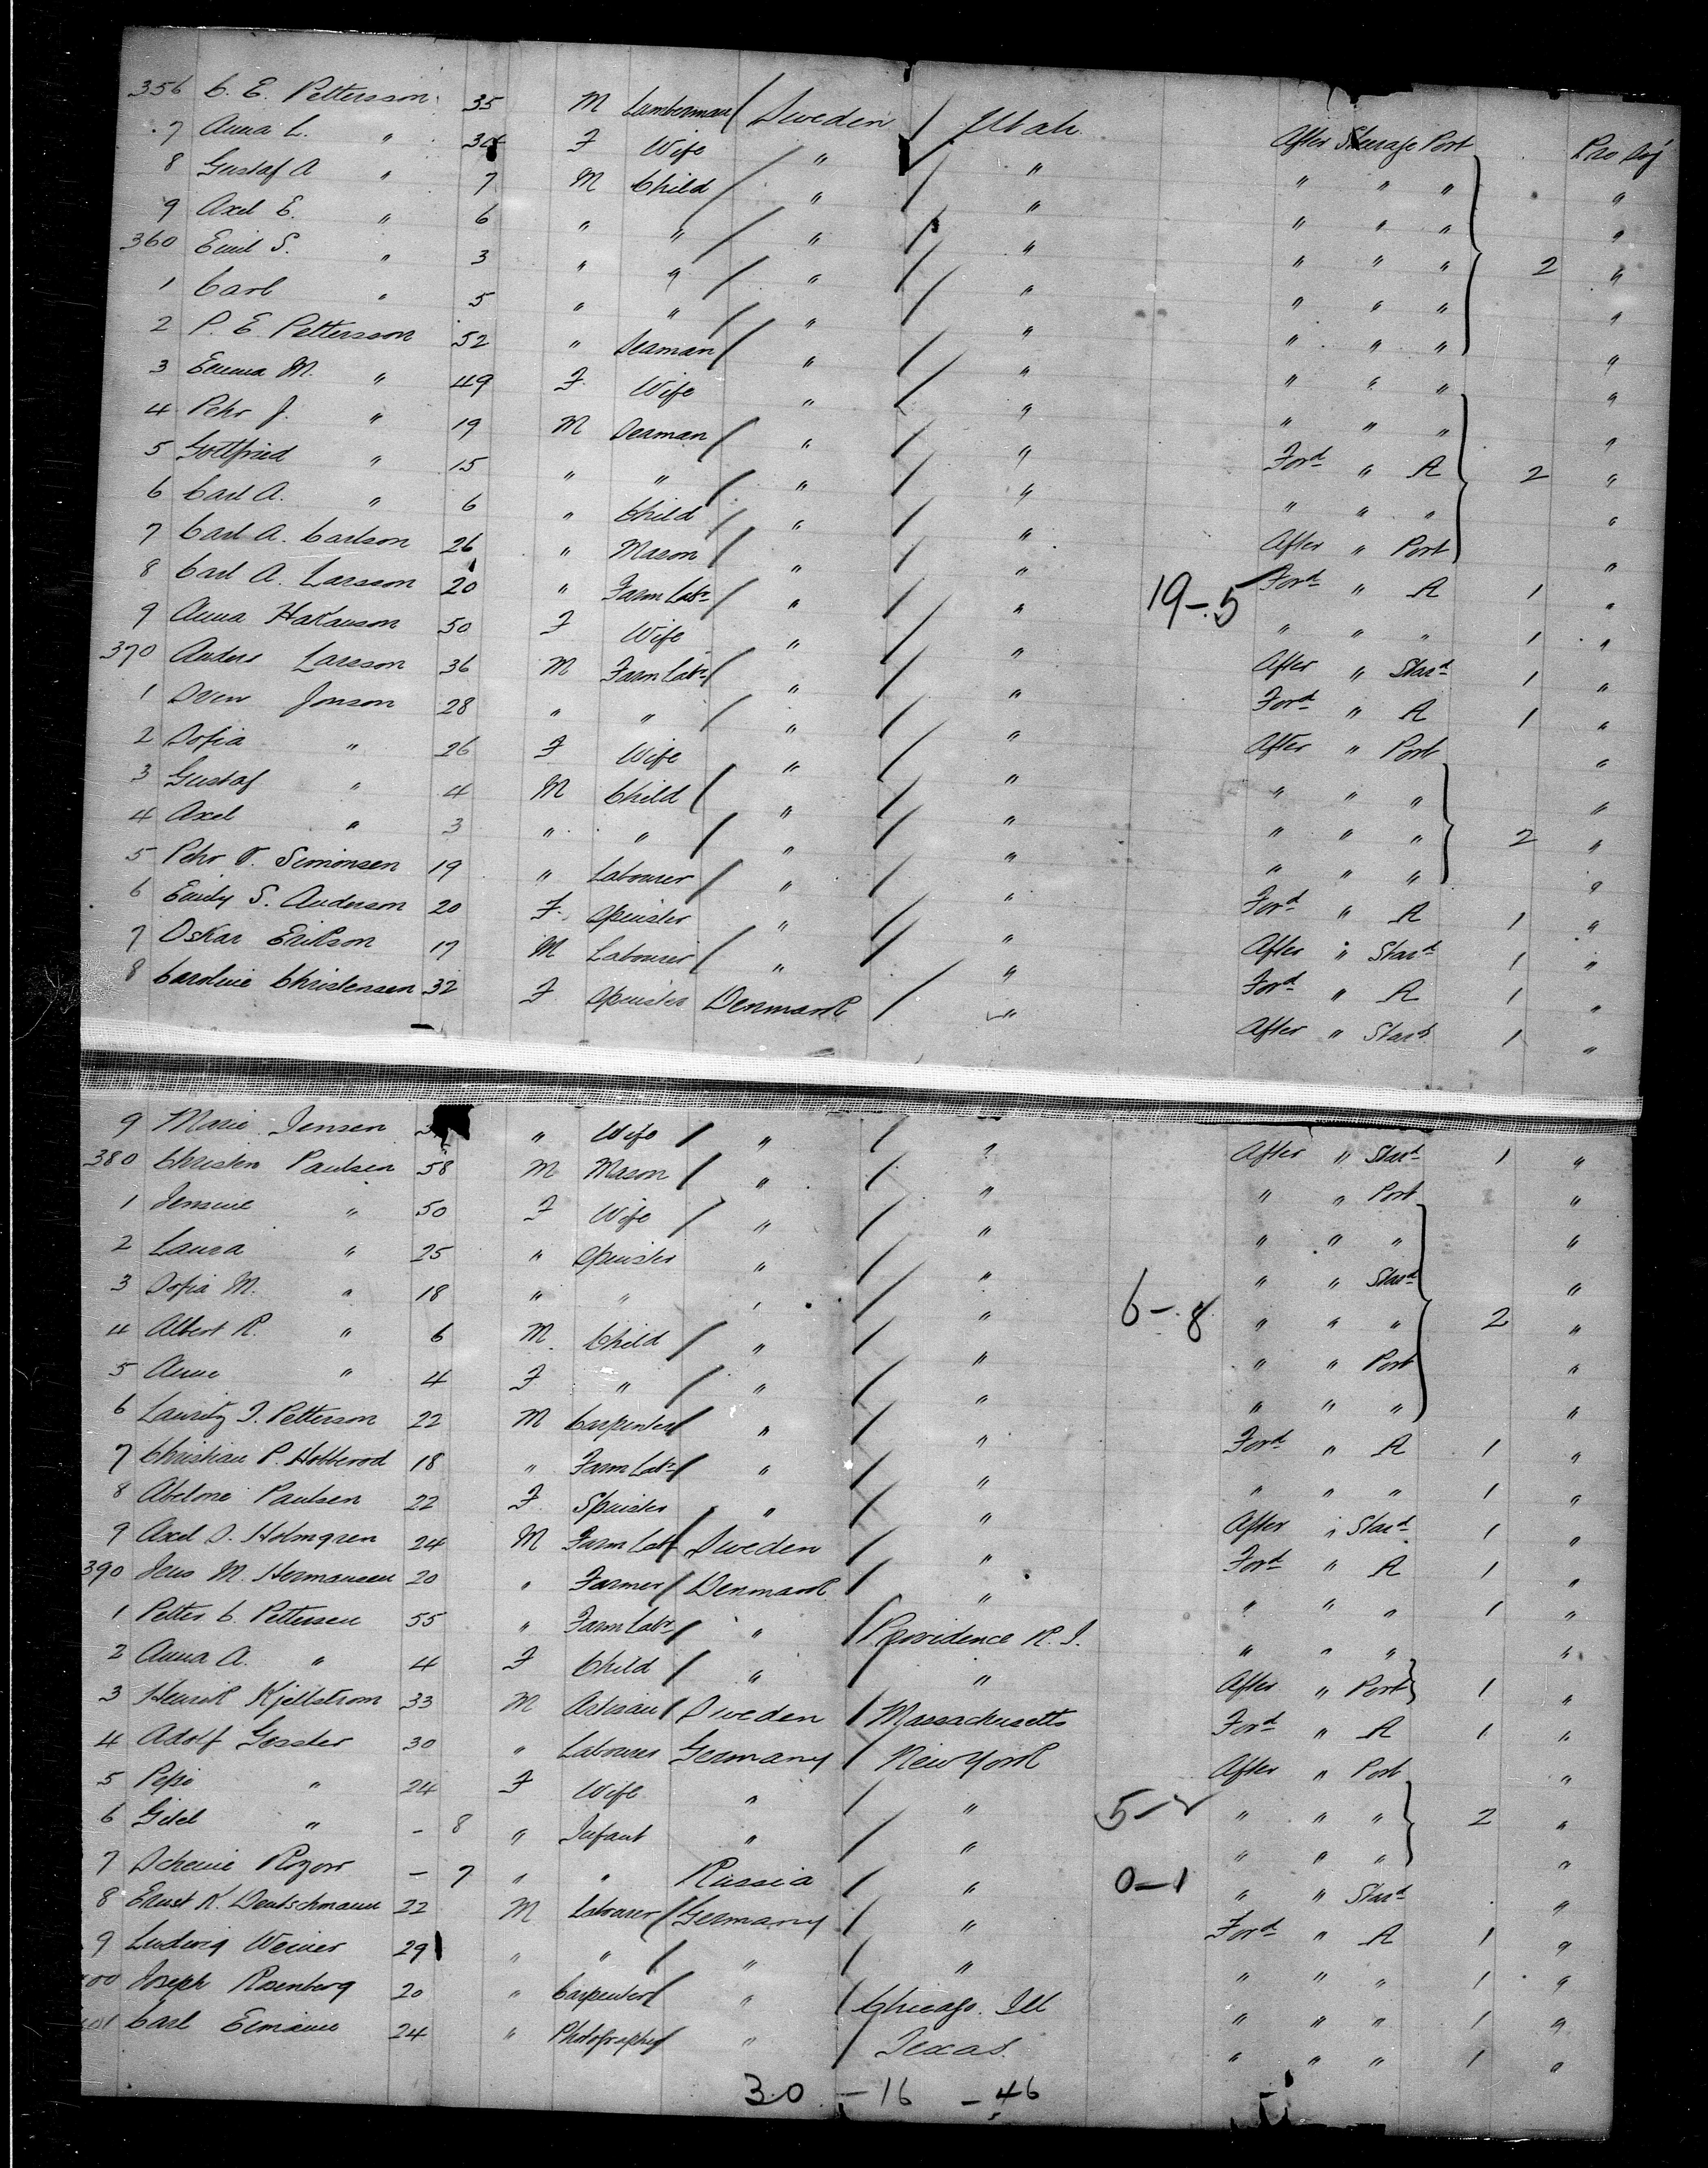 356 C. E. Pettersson 35 M Lumberman Sweden Utah After Steerage Port Pro Soj
7 Anna L. " 34 F Wife " " " " " "
8 Gustaf A " 7 M Child " " " " " "
9 Axel E. " 6 " " " " " " " 2 "
360 Emil S. " 3 " " " " " " " "
1 Carl " 5 " " " " " " " "
2 P. E. Pettersson 52 " Seaman " " " " " "
3 Emma M. " 49 F Wife " " " " " "
4 Pehr J. " 19 M Seaman " " Ford " A 2 "
5 Gottfried " 15 " " " " " " " "
6 Carl A. " 6 " Child " " After " Port "
7 Carl A. Carlson 26 " Mason " " Ford " A 1 "
8 Carl A. Larsson 20 " Farm Labr " " " " " 1 "
19-5
9 Anna Hakanson 50 F Wife " " After " Stard 1 "
370 Anders Larsson 36 M Farm Labr " " Ford " A 1 "
1 Sven Jonson 28 " " " " After " Port "
2 Sofia " 26 F Wife " " " " " "
3 Gustaf " 4 M Child " " " " " 2 "
4 Axel " 3 " " " " " " " "
5 Pehr T. Simonsen 19 " Labourer " " Ford " A 1 "
6 Emily S. Anderson 20 F Spinster " " After " Stard 1 "
7 Oskar Erikson 17 M Labourer " " Ford " A 1 "
8 Caroline Christensen 32 F Spinster Denmark " After " Stard 1 "
9 Marie Jensen " Wife " " After " Stard 1 "
380 Christen Paulsen 58 M Mason " " " " Port "
1 Jensine " 50 F Wife " " " " " "
2 Laura " 25 " Spinster " " " " Stard "
3 Sofia M. " 18 " " " " 6-8 " " " 2 "
4 Albert R. " 6 M Child " " " " Port "
5 Anne " 4 F " " " " " " "
6 Lauritz J. Petterson 22 M Carpenter " " Ford " A 1 "
7 Christian P. Hobberod 18 " Farm Labr " " " " " 1 "
8 Abelone Paulsen 22 F Spinster " " After " Stard 1 "
9 Axel S. Holmgren 24 M Farm Labr Sweden " Ford " A 1 "
390 Jens M. Hermansen 20 " Farmer Denmark " " " " 1 "
1 Petter C. Pettersen 55 " Farm Labr " Providence R. I. " " " "
2 Anna A. " 4 F Child " " After " Port 1 "
3 Henrik Kjellstrom 33 M Artisan Sweden Massachusetts Ford " A 1 "
4 Adolf Gessler 30 " Labourer Germany New York After " Port "
5 Pepi " 24 F Wife " " 5-2 " " " 2 "
6 Gitel " - 8 " Infant " " " " " "
7 Scheine Rozow - 7 " " Russia " 0-1 " " Stard "
8 Ernst K. Deutschmann 22 M Labourer Germany " Ford " A 1 "
9 Ludwig Weiner 29 " " " " " " " 1 "
400 Joseph Rosenberg 20 " Carpenter " Chicago. Ill " " " 1 "
401 Carl Ermaine 24 " Photographer " Texas. " " " 1 "
30 - 16 - 46